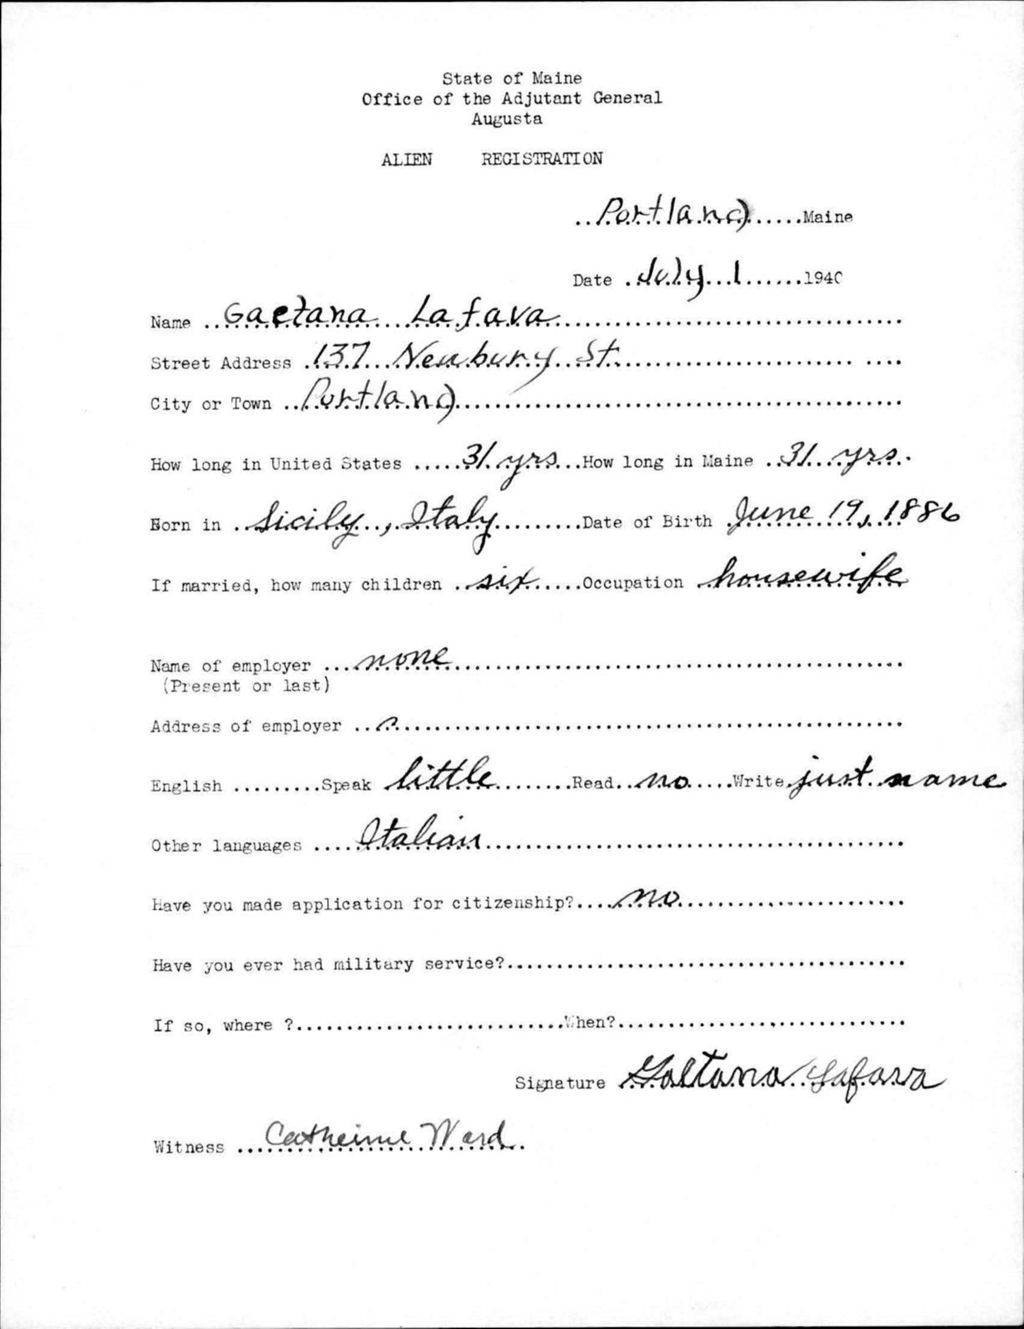 State of Maine
Office of the Adjutant General
Augusta
ALIEN REGISTRATION
..Portland......Maine
Date .July 1.......1940
Name ..Gaetana Lafava
Street Address .137 Newbury St.
City or Town ..Portland
How long in United States .....31 yrs...How long in Maine ..31 yrs.
Born in ..Sicily, Italy..........Date of Birth .June 19, 1886
If married, how many children ..six.....Occupation ..housewife
Name of employer ...none
(Present or last)
Address of employer ..
English .........Speak little........Read..no.....Write.just name
Other languages ....Italian
Have you made application for citizenship?....no
Have you ever had military service?
If so, where ?...........................When?
Signature Galtana Lafava
Witness ...Catheime Ward